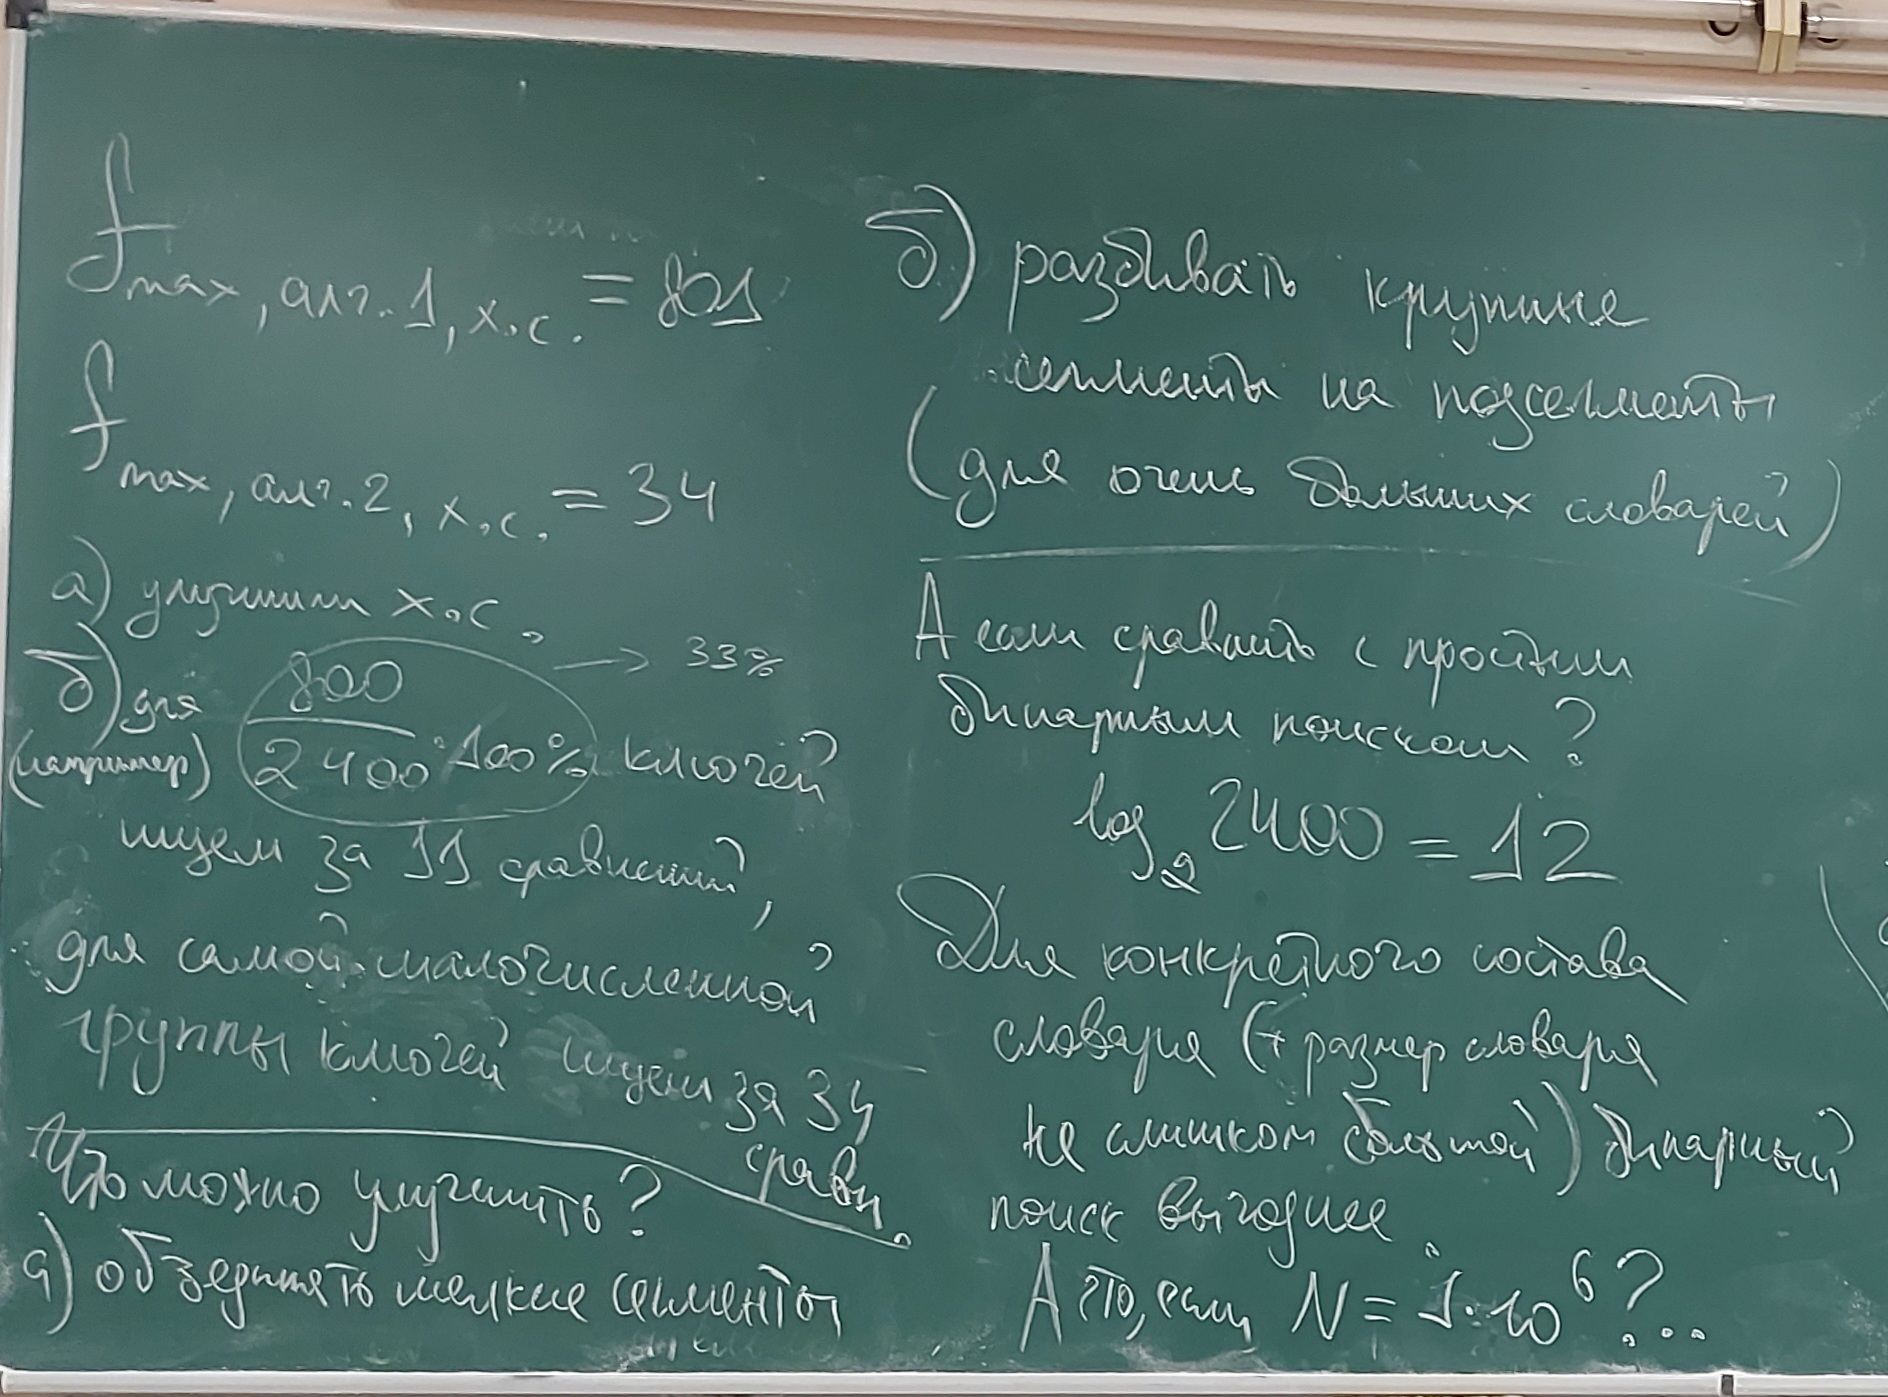 f max, алг.1, х.с. = 801
f max, алг.2, х.с. = 34
а) улучшили х.с.
б) для (например) 800/2400 · 100% ключей → 33%
ищем за 11 сравнений,
для самой малочисленной
группы ключей ищем за 34
сравн.
Что можно улучшить?
а) объединять мелкие сегменты
б) разбивать крупные
сегменты на подсегменты
(для очень больших словарей)
А если сравнить с простым
бинарным поиском?
log₂ 2400 = 12
Для конкретного состава
словаря (+ размер словаря
не слишком большой) бинарный
поиск выгоднее.
А что, если N = 1·10⁶?...